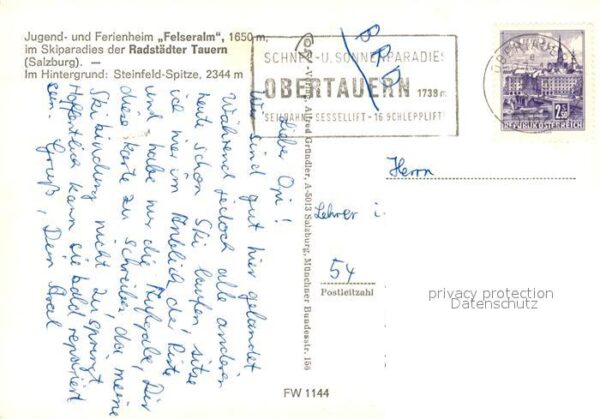 Jugend- und Ferienheim „Felseralm", 1650 m,
im Skiparadies der Radstädter Tauern
(Salzburg).
Im Hintergrund: Steinfeld-Spitze, 2344 m
BRD
SCHNEE-U.SONNENPARADIES
OBERTAUERN 1738 m
SEILBAHN SESSELLIFT - 16 SCHLEPPLIFT
OBERTAUERN
2.50
REPUBLIK ÖSTERREICH
Lieber Opi!
Wir sind gut hier gelandet
Während jedoch alle anderen
heute schon Ski laufen, sitze
ich hier im Anblick der Piste
und habe nur die Aufgabe, Dir
diese Karte zu schreiben, da meine
Skibindung nicht zuspringt.
Hoffentlich kann sie bald repariert
sein. Gruß, Dein
Alfred Gründler, A-5013 Salzburg, Münchner Bundesstr. 156
Herrn
Lehrer i.
54
Postleitzahl
privacy protection
Datenschutz
FW 1144